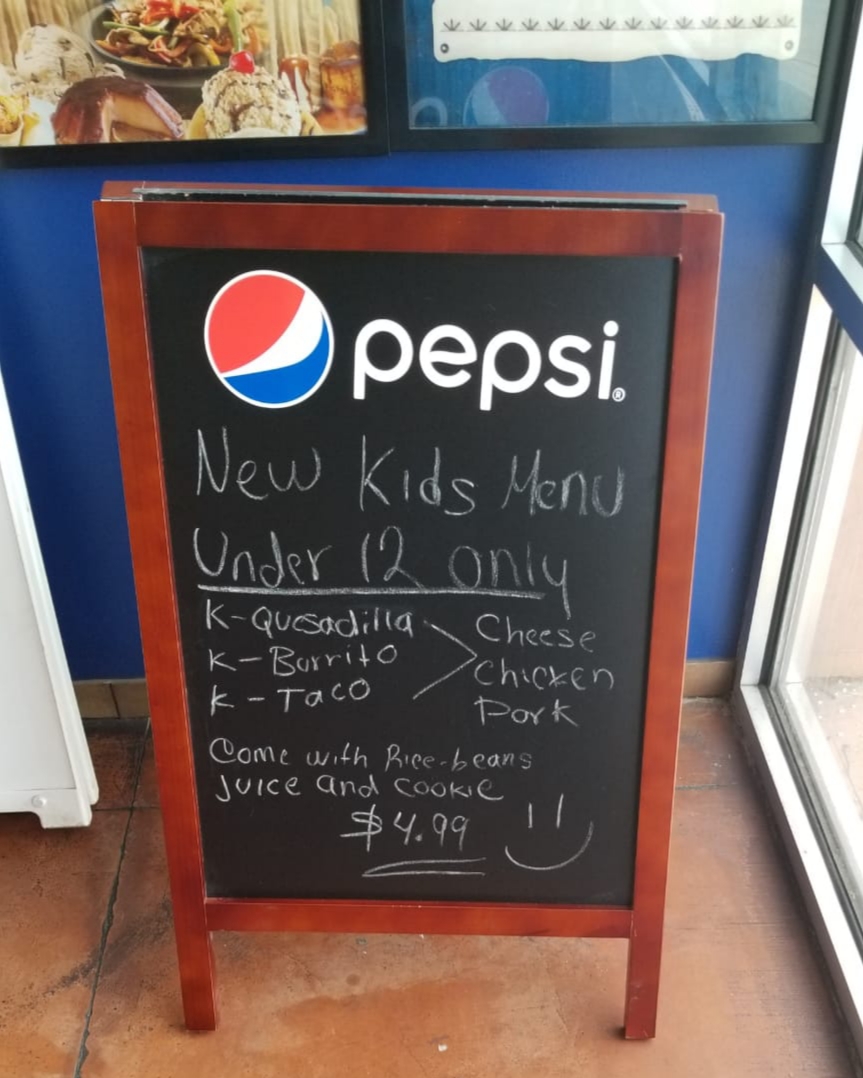 pepsi®
New Kids Menu
Under 12 only
K-Quesadilla
K-Burrito
K-Taco
Cheese
Chicken
Pork
Come with Rice-beans
Juice and cookie
$4.99